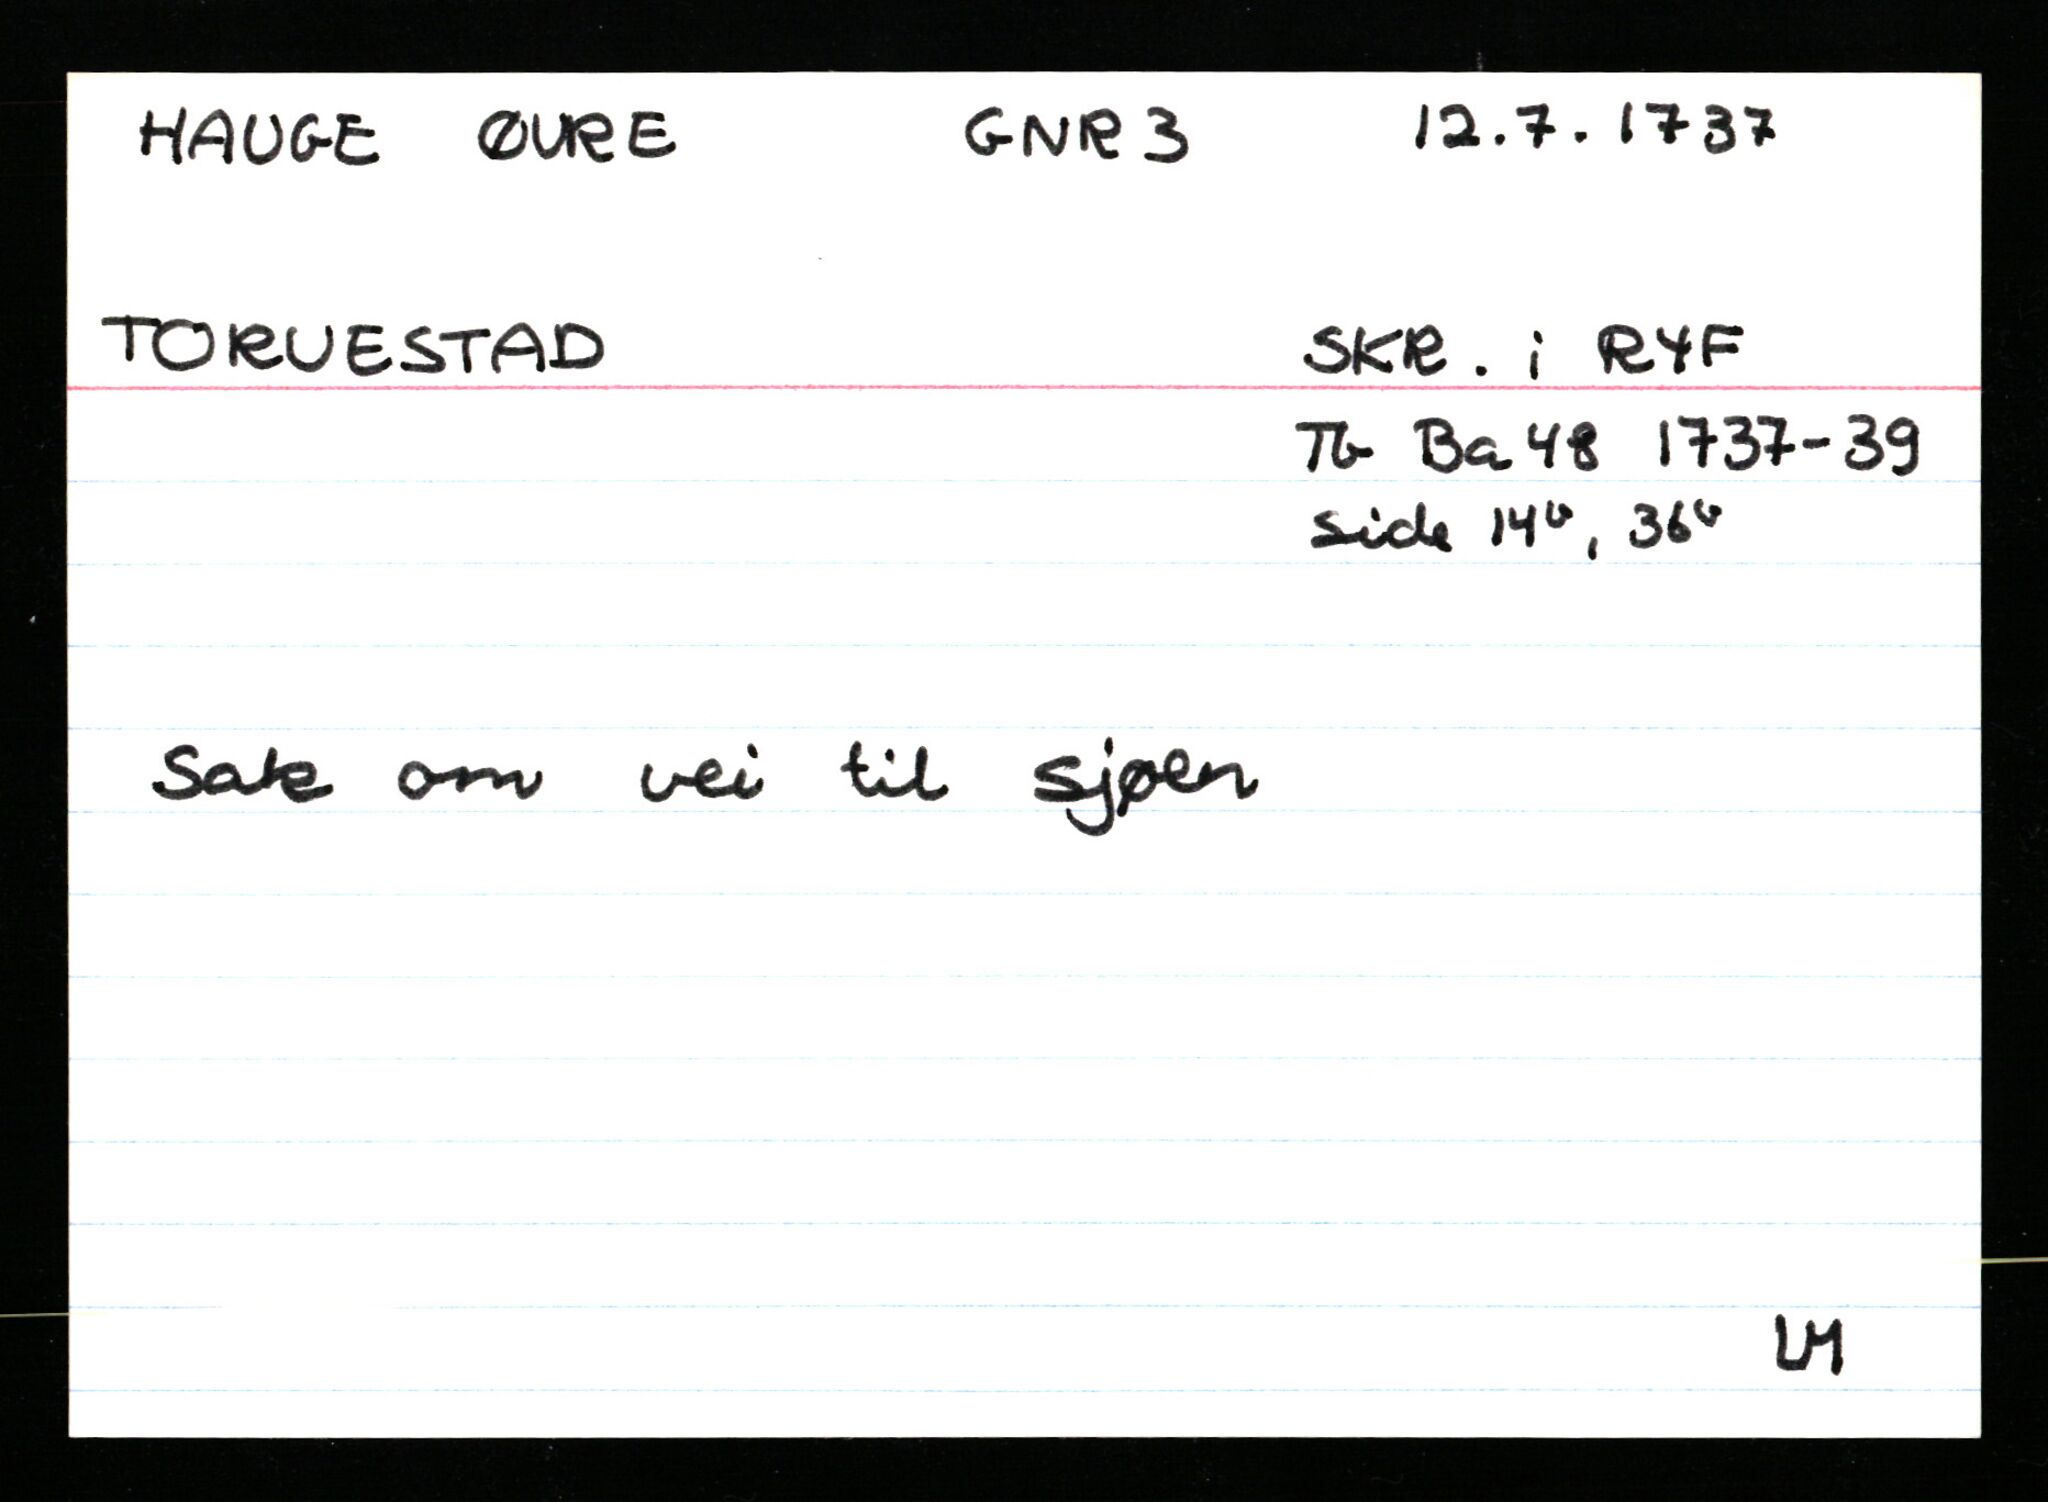 HAUGE ØVRE GNR 3 12.7.1737
TORVESTAD SKR. i RYF
Tb Ba 48 1737-39
side 14b, 36b
Sak om vei til sjøen
LM